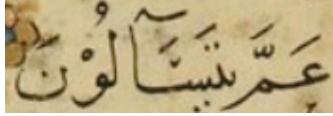 عَمَّ يَتَسَّآلُوْنَ